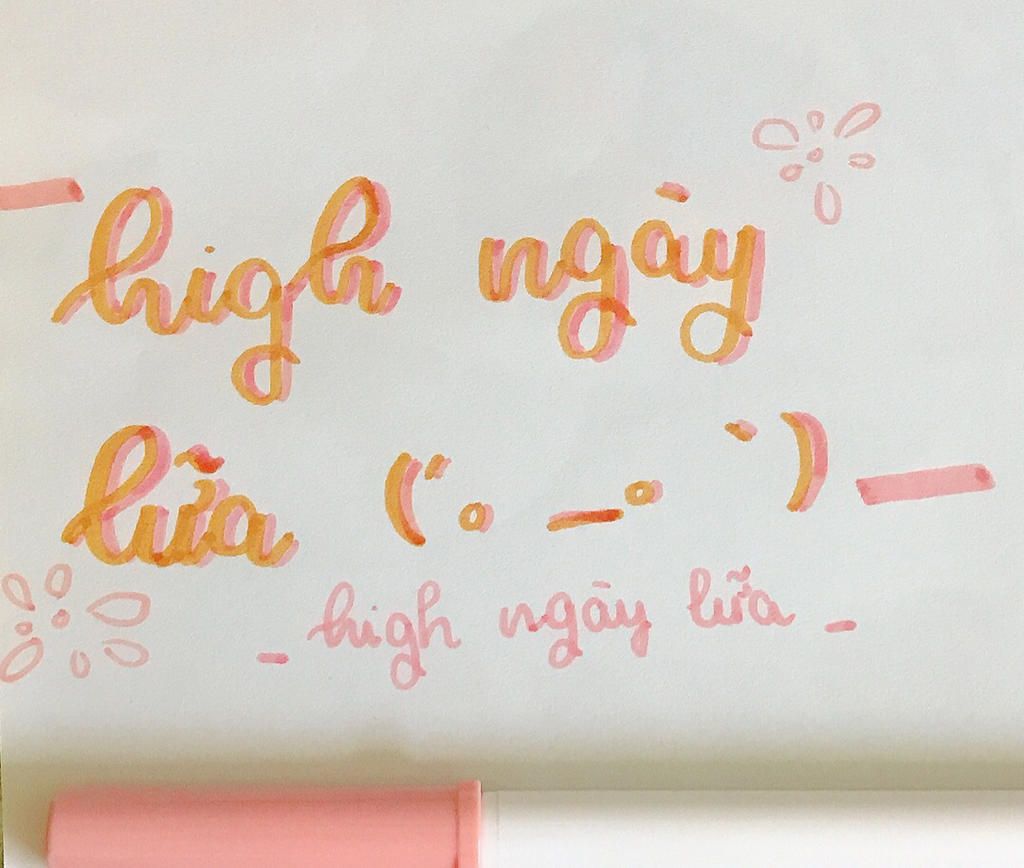 high ngày
lữa (“。_。`)
_ high ngày lữa _